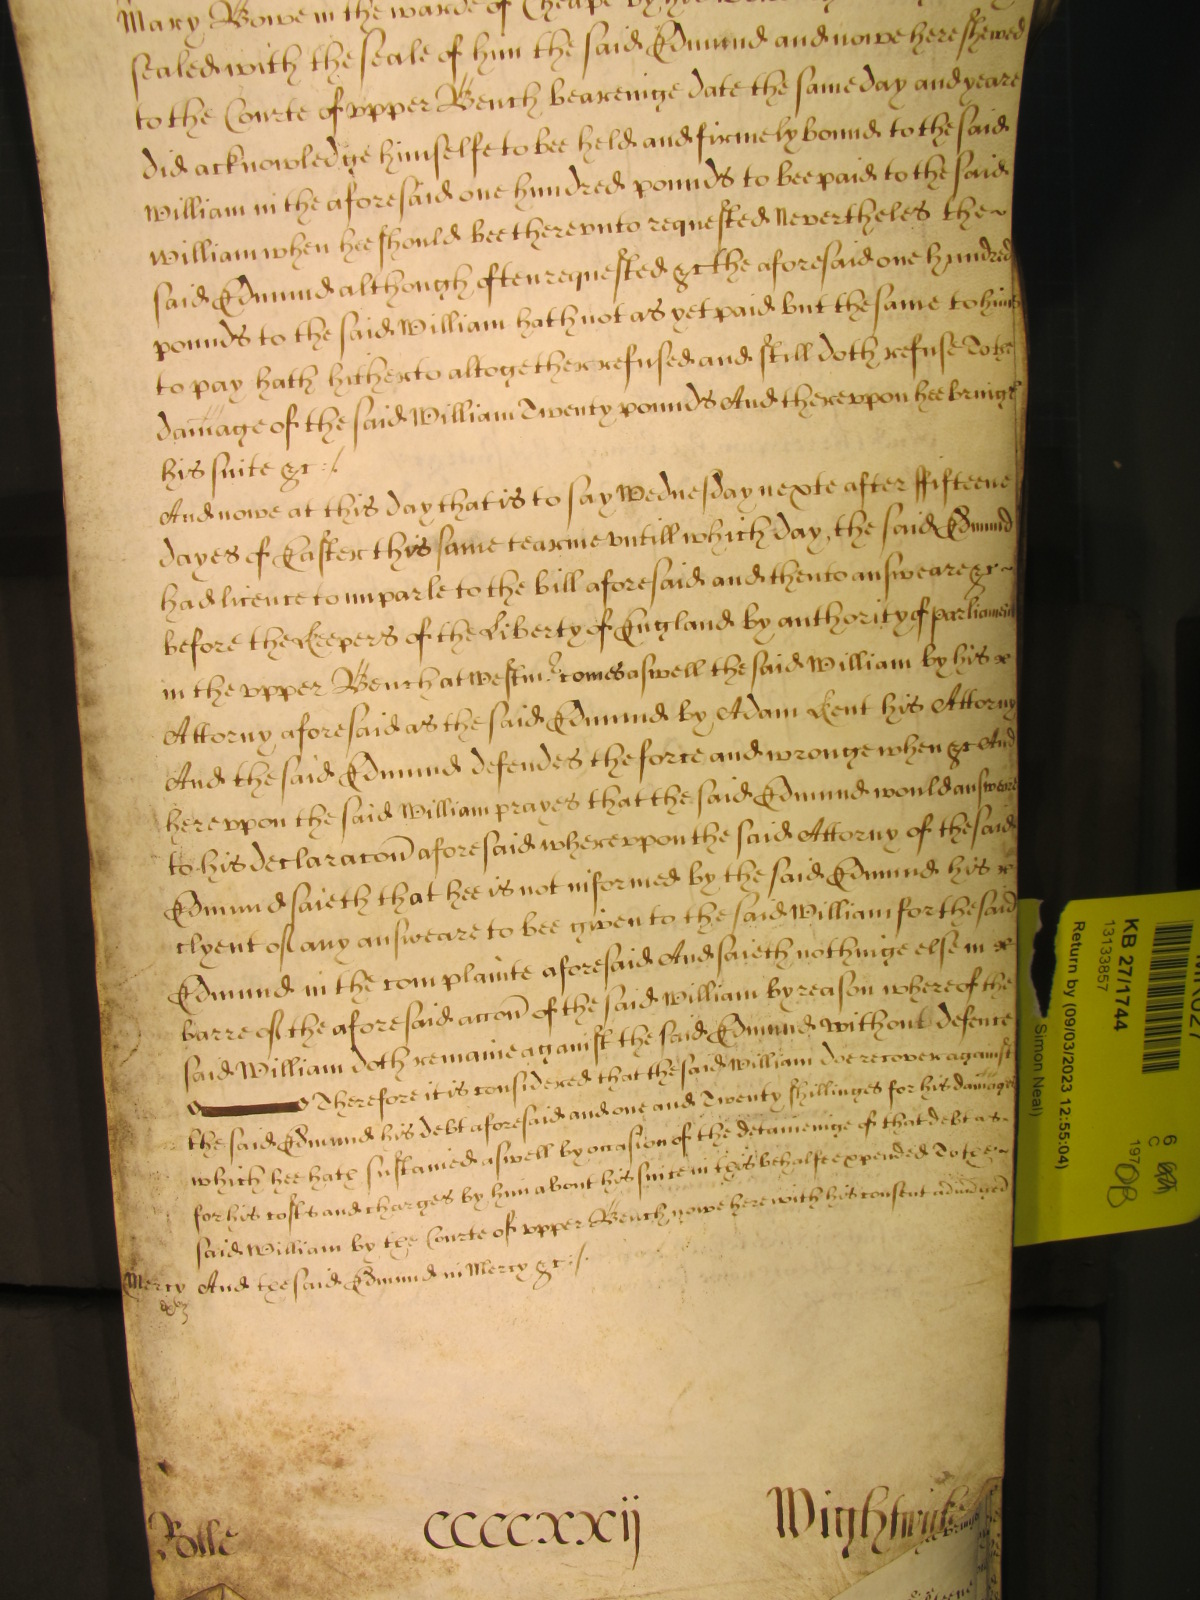 Mary Bowe in the warde of Cheape by hys
sealed with the seale of him the said Edmund and nowe here shewed
to the Courte of vpper Bench beareinge date the same day and yeare
did acknowledge himselfe to bee held and firmely bound to the said
William in the aforesaid one hundred pounds to bee paid to the said
William when hee should bee therevnto requested Nevertheles the
said Edmund although often requested &c the aforesaid one hundred
pounds to the said William hath not as yet paid but the same to him
to pay hath hitherto altogether refused and still doth refuse To the
damage of the said William Twenty pounds And therevpon hee bringe
his suite &c:/.
And nowe at this day that is to say Wednesday nexte after ffifteene
dayes of Easter this same tearme vntill which day the said Edmund
had licence to imparle to the bill aforesaid and then to answeare &c
before the Keepers of the Liberty of England by authority of parliament
in the vpper Bench at Westmr. comes aswell the said William by his
Attorny aforesaid as the said Edmund by Adam Kent his Attorny
And the said Edmund defendes the force and wronge when &c And
herevpon the said William prayes that the said Edmund would answeare
to his declaracon aforesaid wherevpon the said Attorny of the said
Edmund saieth that hee is not informed by the said Edmund his
clyent of any answeare to bee given to the said William for the said
Edmund in the complainte aforesaid And saieth nothinge else in
barre of the aforesaid accon of the said William by reason whereof the
said William doth remaine against the said Edmund without defence
Therefore it is considered that the said William doe recover against
the said Edmund his debt aforesaid and one and Twenty shillinges for his damages
which hee hath sustained aswell by occasion of the detaineinge of that debt as
for his costs and charges by him about his suite in this behalfe expended To the
said William by the Courte of vpper Bench nowe here with his consent adiudged
Mercy And the said Edmund in Mercy &c:/.
Rolle CCCCxxij Wightwike
KB 27/1744
13133857
Return by (09/03/2023 12:55:04)
Simon Neal)
6
C
197